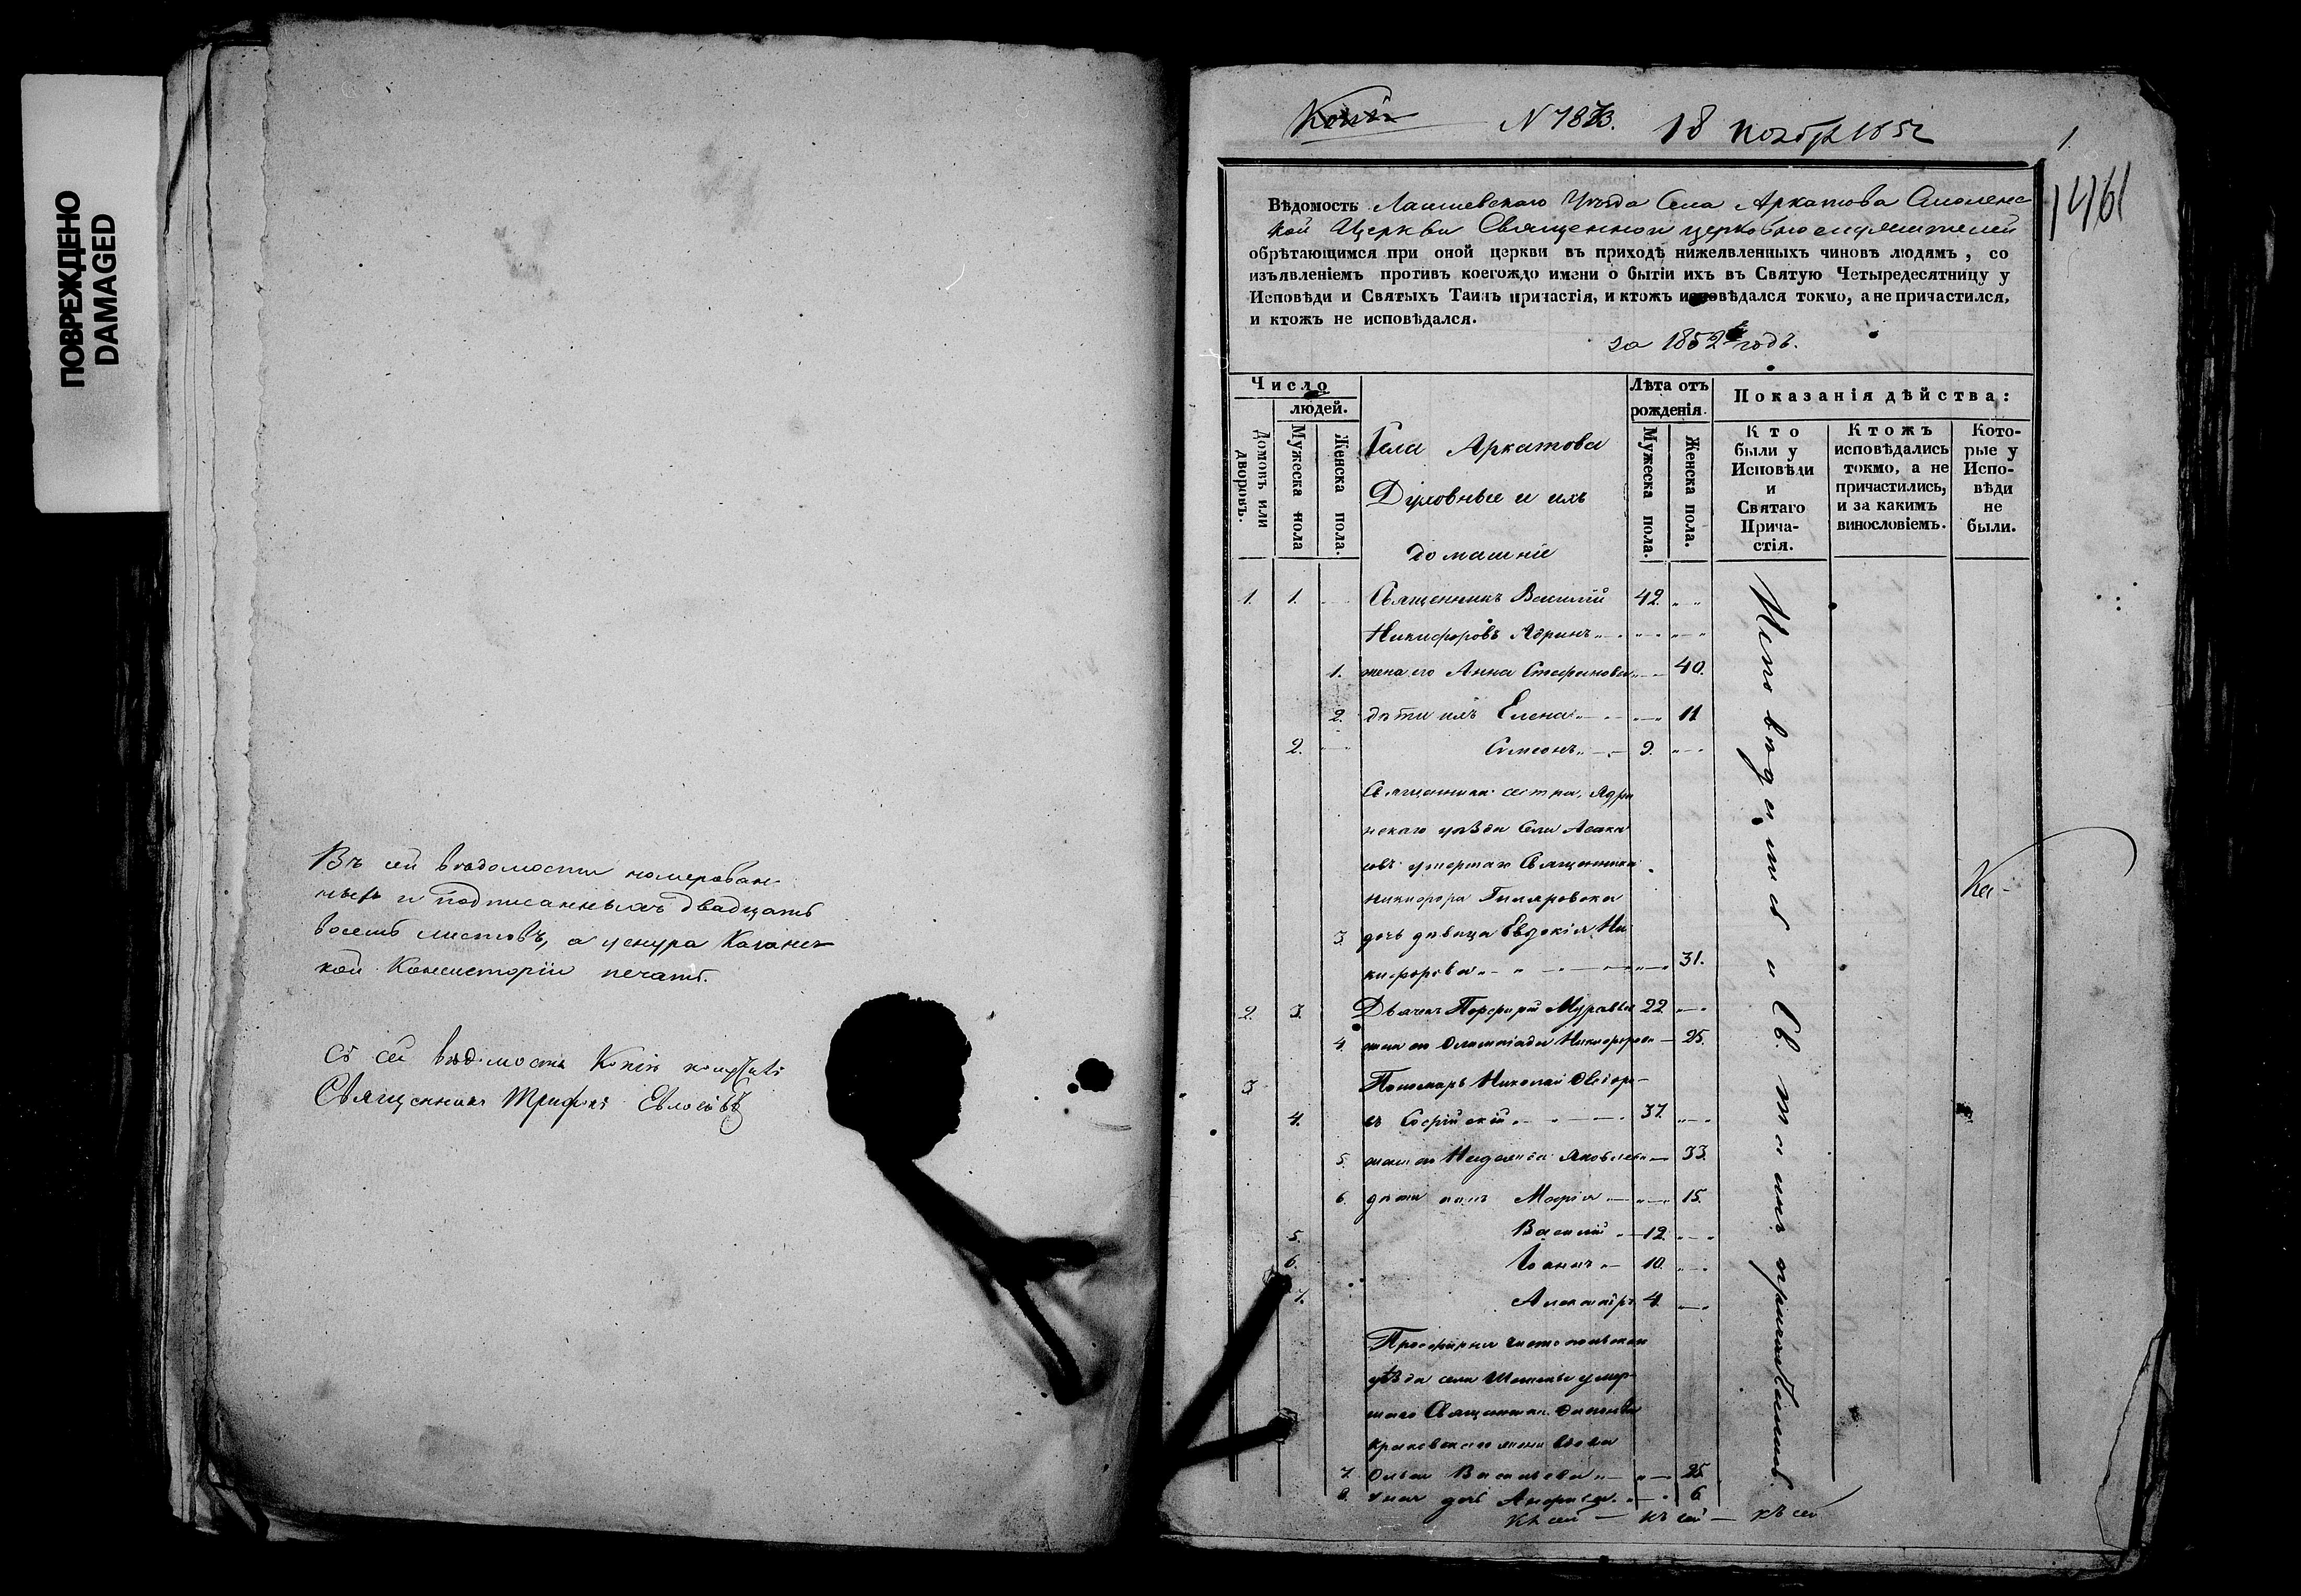 ПОВРЕЖДЕНО
DAMAGED
Въ сей вѣдомости номерован-
ныхъ и подписанныхъ двадцать
восемь листовъ, а у шнура Казанс-
кой Консисторіи печать.
Съ сей вѣдомости Копію получилъ
Священникъ Трифонъ
Копія
N 7873. 18 ноябр 1852
1.
1461
Вѣдомость Лаишевскаго Уѣзда Села Аркатова Смоленс
кой Церкви Священноицерковнослужителей
обрѣтающимся при оной церкви въ приходѣ нижеявленныхъ чиновъ людямъ, со
изъявленіемъ противъ коегождо имени о бытіи ихъ въ Святую Четыредесятницу у
Исповѣди и Святыхъ Таинъ причастія, и ктожъ исповѣдался токмо, а не причастился,
и ктожъ не исповѣдался.
за 1852й годъ.
Число
людей.
Домовъ или дворовъ.
Мужеска пола
Женска пола.
Села Аркатова
Духовные и ихъ
домашніе
Лѣта отъ
рожденія.
Мужеска пола.
Женска пола.
Показанія дѣйства:
Кто
были у
Исповѣди
и
Святаго
Прича-
стія.
Ктожъ
исповѣдались
токмо, а не
причастились,
и за какимъ
винословіемъ.
Кото-
рые у
Испо-
вѣди
не
были.
1. 1. Священникъ Василій 42. „ „
Никифоровъ Ядринъ
1. жена его Анна Стефанова 40.
2. дѣти ихъ Елена 11
2. Симеонъ 9.
Священника сестра, Ядри
нскаго уѣзда Села Асака
совъ умершаго Священника
Никифора
3. дочь дѣвица Евдокія Ни
кифорова 31.
2. 3. Дьячекъ Порфирій 22
4. жена его Олимпіада Никифорова 25.
3 Пономарь Николай
въ Софійскій 37.
4.
5. жена его Надежда Яковлева 33.
6. дѣти ихъ Марія 15.
5. Василій 12.
6. Іоаннъ 10.
7. Александръ 4.
Просфирня Чистопольскаго
уѣзда села умер-
шаго Священника
жена вдова
7. Ольга Васильева 25.
8. у нея дочь 6
Исповѣдались и Св. таинъ причастились
Ка-
къ сей — къ сей — къ сей